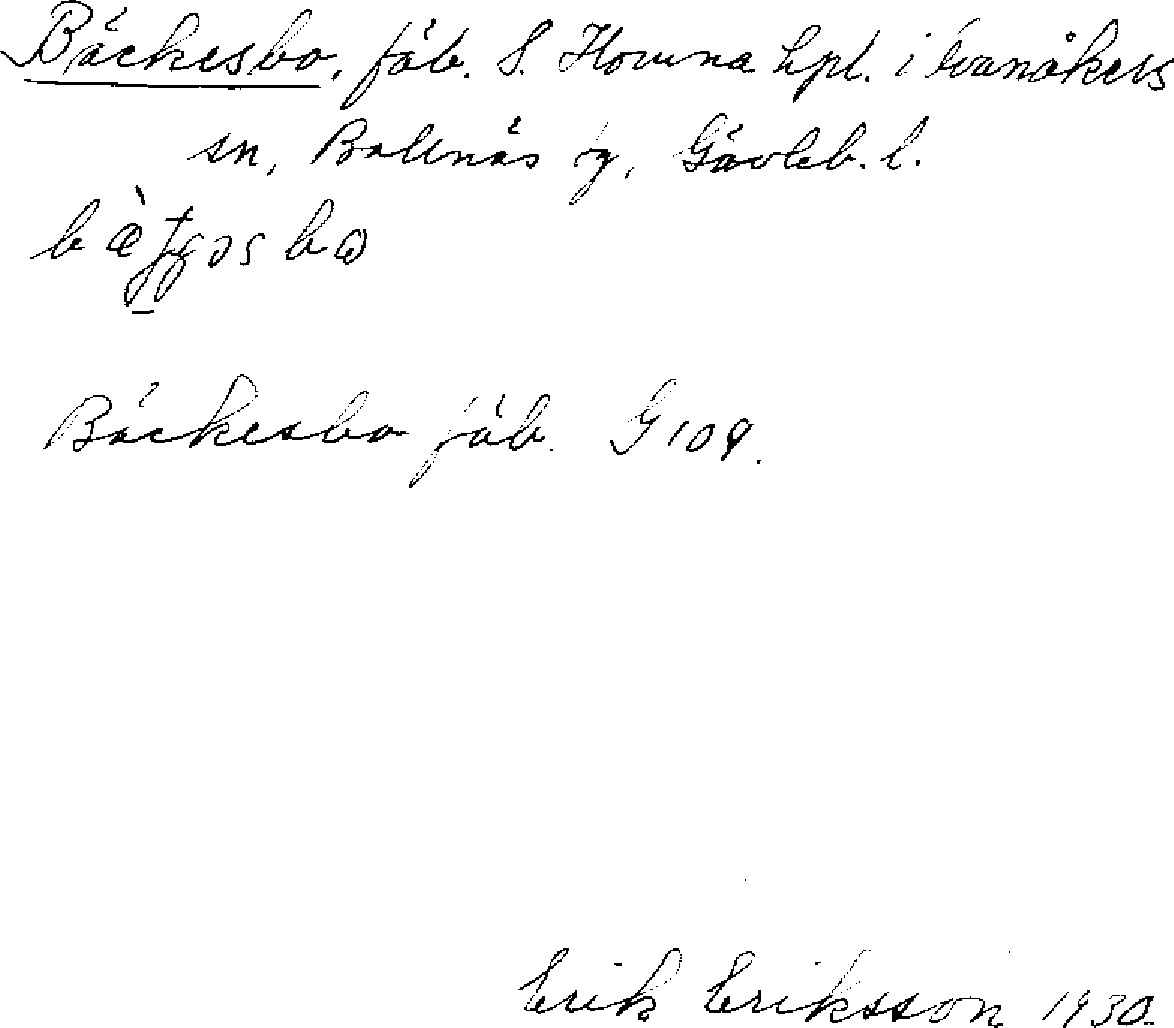 Bäckesbo, fäb. S. Homna hpl. i Ovanåkers
sn, Bollnäs tg, Gävleb. l.
Bäckesbo fäb. G 109.
Erik Eriksson 1930.